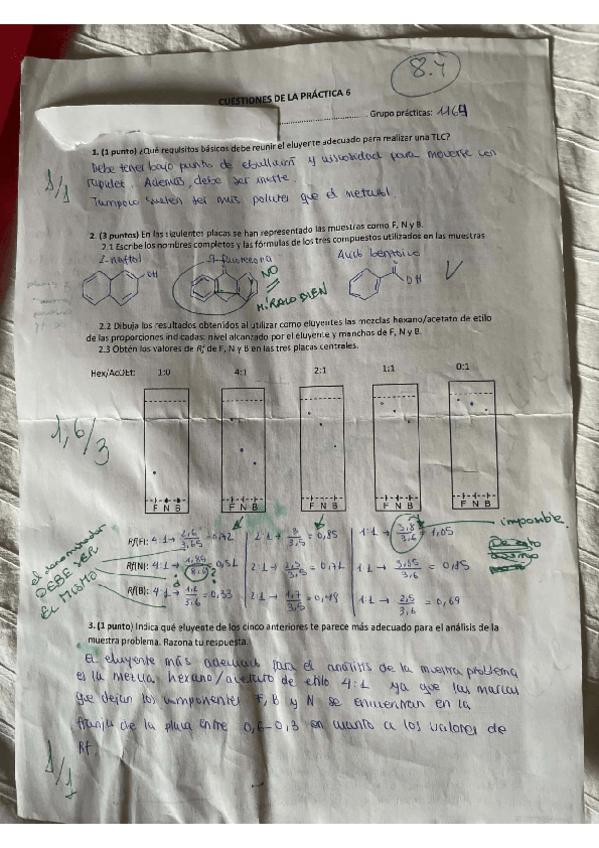 8.4
CUESTIONES DE LA PRÁCTICA 6
Grupo prácticas: 1164
1. (1 punto) ¿Qué requisitos básicos debe reunir el eluyente adecuado para realizar una TLC?
Debe tener bajo punto de ebullición y viscosidad para moverse con
rapidez. Además, debe ser inerte.
Tampoco suelen ser más polares que el metanol.
1/1
2. (3 puntos) En las siguientes placas se han representado las muestras como F, N y B.
2.1 Escribe los nombres completos y las fórmulas de los tres compuestos utilizados en las muestras
2-naftol
9-fluorenona
Ácido benzoico
OH
O
NO
O
OH
MÍRALO BIEN
2.2 Dibuja los resultados obtenidos al utilizar como eluyentes las mezclas hexano/acetato de etilo
de las proporciones indicadas: nivel alcanzado por el eluyente y manchas de F, N y B.
2.3 Obtén los valores de Rf de F, N y B en las tres placas centrales.
Hex/AcOEt: 1:0 4:1 2:1 1:1 0:1
1,6/3
F N B F N B F N B F N B F N B
imposible.
el denominador
DEBE SER
EL MISMO
Rf(F): 4:1 → 2,6/3,65 = 0,72 2:1 → 3/3,5 = 0,85 1:1 → 3,8/3,6 = 1,05
Rf(N): 4:1 → 1,85/ = 0,51 2:1 → 2,5/3,5 = 0,71 1:1 →
Rf(B): 4:1 → 1,2/3,6 = 0,33 2:1 → 1,7/3,5 = 0,48 1:1 → 2,5/3,6 = 0,69
3. (1 punto) Indica qué eluyente de los cinco anteriores te parece más adecuado para el análisis de la
muestra problema. Razona tu respuesta.
El eluyente más adecuado para el análisis de la muestra problema
es la mezcla hexano/acetato de etilo 4:1 ya que las marcas
que dejan los componentes F, B y N se encuentran en la
franja de la placa entre 0,6-0,3 en cuanto a los valores de
Rf.
1/1